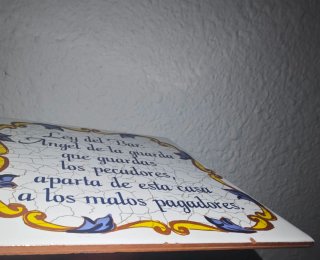 Ley del Bar
Angel de la guarda
que guardas
los pecadores,
aparta de esta casa
a los malos pagadores.